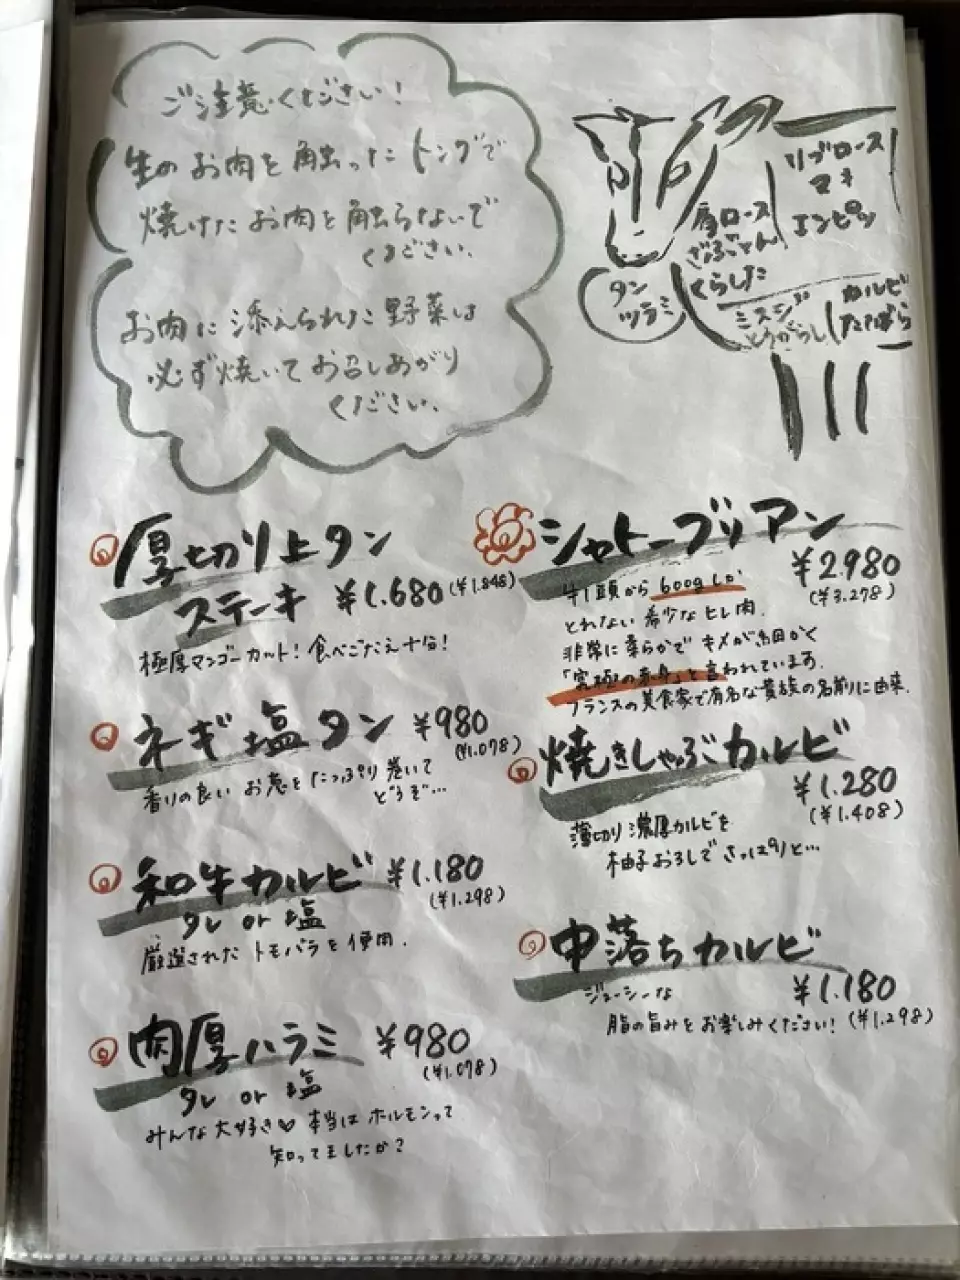 ご注意ください!
生のお肉を触ったトングで
焼けたお肉を触らないで
ください.
お肉に添えられた野菜は
必ず焼いてお召しあがり
ください.
リブロース
マキ
エンピツ
肩ロース
ざぶとん
くらした
タン
ツラミ
ミスジ
とうがらし
カルビ
たてばら
厚切り上タン
ステーキ ¥1.680(¥1.848)
極厚マンゴーカット!食べごたえ十分!
ネギ塩タン ¥980
(¥1.078)
香りの良いお葱をたっぷり巻いて
どうぞ…
和牛カルビ ¥1.180
(¥1.298)
タレ or 塩
厳選されたトモバラを使用.
肉厚ハラミ ¥980
(¥1.078)
タレ or 塩
みんな大好き♥本当はホルモンって
知ってましたか?
シャトーブリアン
¥2.980
(¥3.278)
牛1頭から600gしか
とれない希少なヒレ肉.
非常に柔らかでキメが細かく
「究極の赤身」と言われています.
フランスの美食家で有名な貴族の名前に由来.
焼きしゃぶカルビ
¥1.280
(¥1.408)
薄切り濃厚カルビを
柚子おろしでさっぱりと…
中落ちカルビ
¥1.180
ジューシーな
脂の旨みをお楽しみください!(¥1.298)